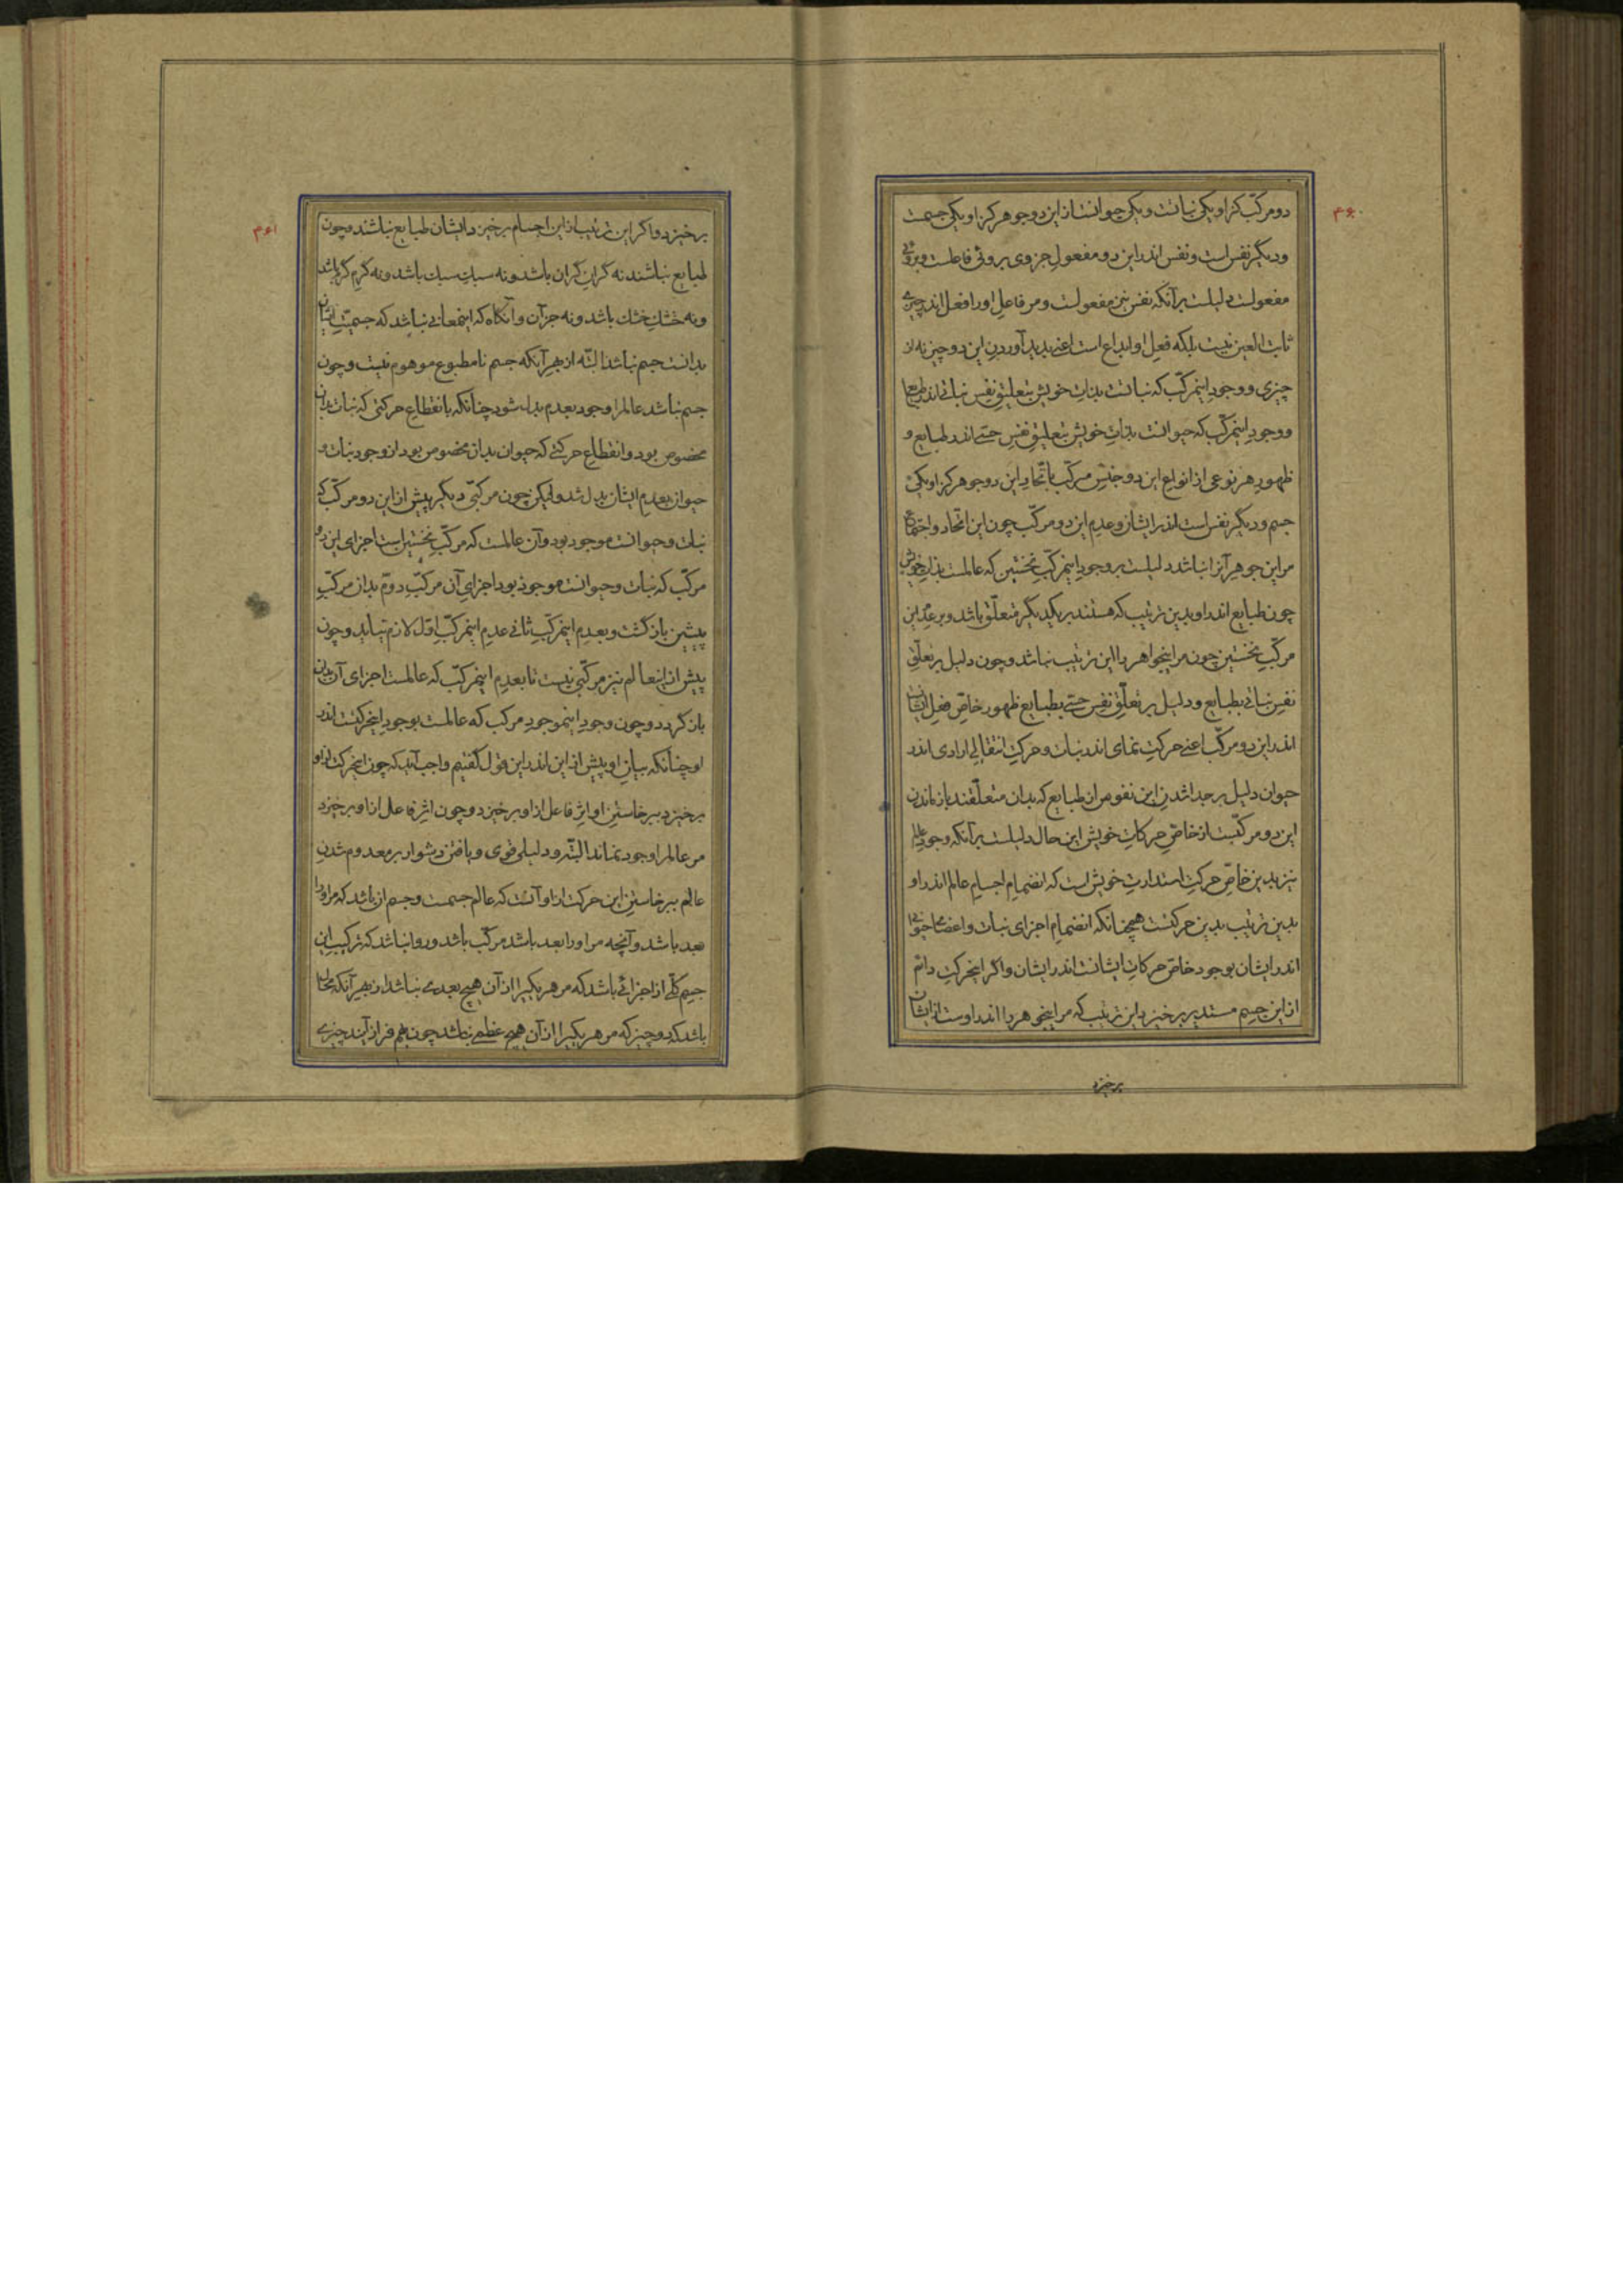 ۴۶۰
دو مرکّب کز او یکی نباتست و یکی حیوانست از این دو جوهر کز او یکی جسمست
و دیگر نفس است و نفس اندر این دو مفعول جزوی بروئی فاعلست و بروئی
مفعولست دلیلست بر آنکه نفس نیز مفعولست و مر فاعلِ او را فعل اندر چیزی
ثابت العین نیست بلکه فعلِ او ابداع است اعنی پدید آوردنِ این دو چیز نه از
چیزی و وجودِ اینمرکّب که نباتست بذاتِ خویش بتعلیقِ نفسِ نباتی اندر طبایع
و وجودِ اینمرکّب که حیوانست بذاتِ خویش بتعلیقِ نفسِ حسّی اندر طبایع و
ظهورِ هر نوعی از انواعِ این دو جنسِ مرکّب باتّحادِ این دو جوهر کز او یکی
جسم و دیگر نفس است اندر ایشان و عدمِ این دو مرکّب چون این اتّحاد و اجتماع
مر این جوهر آنرا نباشد دلیلست بر وجودِ اینمرکّبِ نخستین که عالمست بذاتِ خویش
چون طبایع اندر او بدین ترتیب که هستند بر یکدیگر متعلّق باشد و بر عدمِ این
مرکّبِ نخستین چون مر اینجواهر را این ترتیب نباشد و چون دلیل بر تعلّقِ
نفسِ نباتی بطبایع و دلیل بر تعلّقِ نفسِ حسّی بطبایع ظهورِ خاصّ فعلِ ایشان
اندر این دو مرکّب اعنی حرکتِ نمای اندر نبات و حرکتِ انتقالیِ ارادی اندر
حیوان دلیل بر جدا شدنِ این نفوس از طبایع که بدان متعلّقند باز ماندن
این دو مرکّبست از خاصّ حرکاتِ خویش این حال دلیلست بر آنکه وجودِ عالم
نیز بدین خاصّ حرکتِ استدارتِ خویش است که انضمامِ اجسامِ عالم اندر او
بدین ترتیب بدین حرکتست همچنانکه انضمامِ اجزای نبات و اعضای حیوان
اندر ایشان بوجودِ خاصّ حرکاتِ ایشانست اندر ایشان و اگر اینحرکتِ دائم
از این جسمِ مستدیر برخیزد این ترتیب که مر اینجوهر را اندر اوست از ایشان
برخیزد
۴۶۱
برخیزد و اگر این ترتیب از این اجسام برخیزد ایشان طبایع نباشند و چون
طبایع نباشند نه گرانِ گران باشد و نه سبکِ سبک باشد و نه گرمِ گرم باشد
و نه خشکِ خشک باشد و نه جز آن و آنگاه که اینمعانی نباشد که جسمیّتِ ایشان
بدانست جسم نباشد البتّه از بهرِ آنکه جسم نامطبوع موهوم نیست و چون
جسم نباشد عالم را وجود بعدم بدل شود چنانکه بانقطاعِ حرکتی که نبات بدان
مخصوص بود و انقطاعِ حرکتی که حیوان بدان مخصوص بود از وجود نبات و
حیوان بعدم ایشان بدل شد ولیکن چون مرکّبی دیگر پیش از این دو مرکّب که
نبات و حیوانست موجود بود و آن عالمست که مرکّبِ نخستین است اجزای این دو
مرکّب که نبات و حیوانست موجود بود اجزای آن مرکّبِ دوّم بدان مرکّبِ
پیشین باز گشت و بعدمِ اینمرکّبِ ثانی عدمِ اینمرکّبِ اوّل لازم نیاید و چون
پیش از اینعالم نیز مرکّبی نیست تا بعدمِ اینمرکّب که عالمست اجزای آن بدان
باز گردد و چون وجودِ اینموجودِ مرکب که عالمست بوجودِ اینحرکتست اندر
او چنانکه بیانِ او پیش از این اندر این قول گفتیم واجب آید که چون اینحرکت از او
برخیزد ببرخاستنِ او اثرِ فاعل از او برخیزد و چون اثرِ فاعل از او برخیزد
مر عالم را وجود نماند البتّه و دلیلی قوی و یافتن دشوار بر معدوم شدنِ
عالم ببرخاستنِ این حرکت از او آنست که عالم جسمست و جسم آن باشد که مر او را
بعد باشد و آنچه مر او را بعد باشد مرکّب باشد و روا نباشد که ترکیبِ این
جسمِ کلّی از اجزائی باشد که مر هر یکی را از آن هیچ بعدی نباشد از بهرِ آنکه محال
باشد که دو چیز که مر هر یکی را از آن هیچ عظمی نباشد چون بهم فراز آیند چیزی